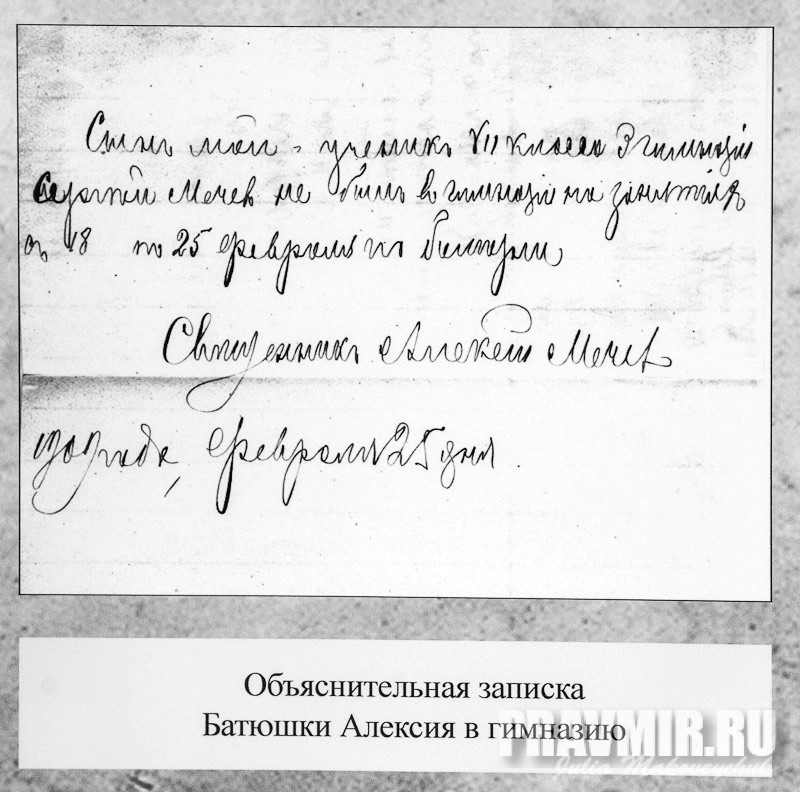 Сынъ мой - ученикъ VII класса 3 гимназіи
Сергѣй Мечев не былъ в гимназіи на занятіях
съ 18 по 25 февраля по болѣзни,
Священникъ Алексѣй Мечев
1909 года, Февраля 25 дня.
Объяснительная записка
Батюшки Алексия в гимназию
PRAVMIR.RU
Julia Makoveychuk